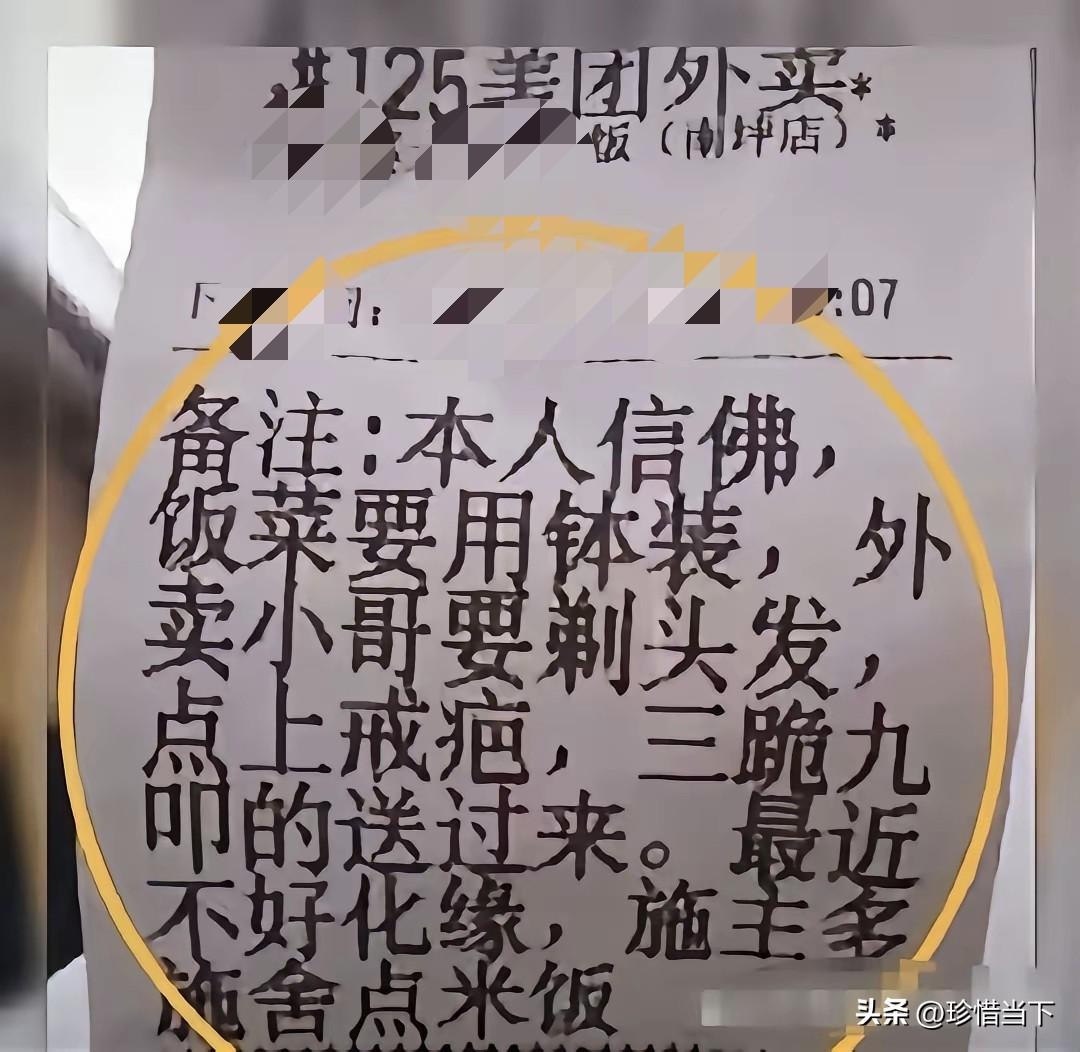 #125美团外卖*
饭（南坪店）*
:07
备注:本人信佛，
饭菜要用钵装，外
卖小哥要剃头发，
点上戒疤，三跪九
叩的送过来。最近
不好化缘，施主多
施舍点米饭
头条 @珍惜当下